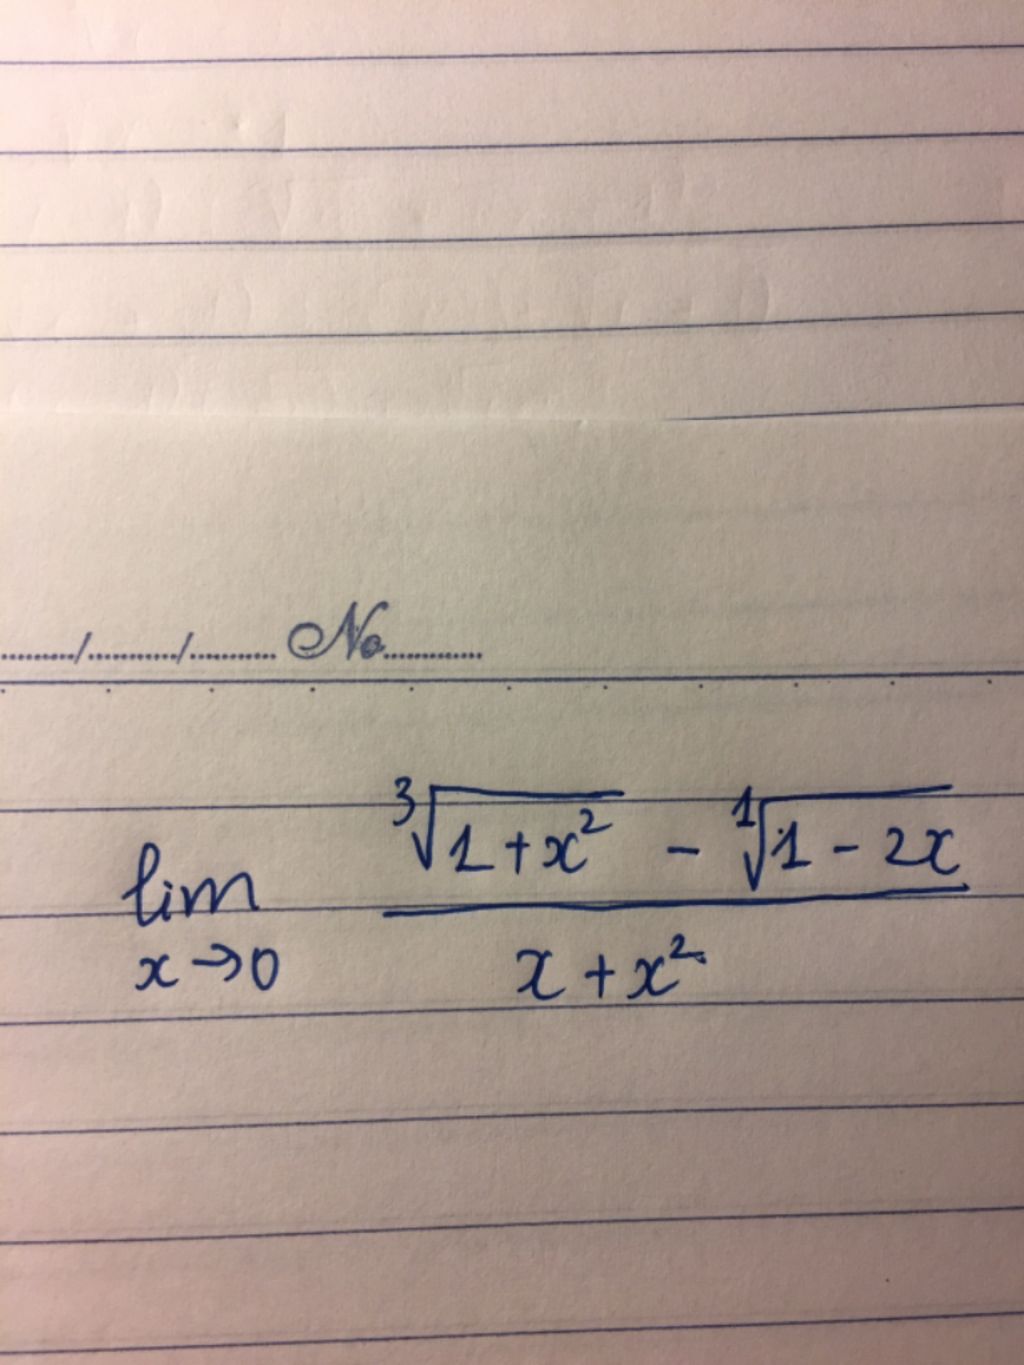 ....../....../...... No......
lim x→0 (∛(1+x²) - ¹√(1-2x)) / (x+x²)